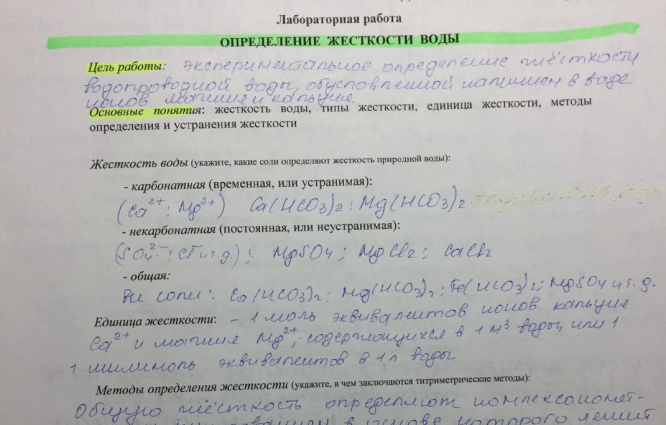 Лабораторная работа
ОПРЕДЕЛЕНИЕ ЖЕСТКОСТИ ВОДЫ
Цель работы: экспериментальное определение жёсткости
водопроводной воды, обусловленной наличием в воде
ионов магния и кальция
Основные понятия: жесткость воды, типы жесткости, единица жесткости, методы
определения и устранения жесткости
Жесткость воды (укажите, какие соли определяют жесткость природной воды):
- карбонатная (временная, или устранимая):
(Ca²⁺; Mg²⁺) Ca(HCO₃)₂; Mg(HCO₃)₂
- некарбонатная (постоянная, или неустранимая):
(SO₄²⁻; Cl⁻ и т.д.); MgSO₄; MgCl₂; CaCl₂
- общая:
Все соли: Ca(HCO₃)₂; Mg(HCO₃)₂; Fe(HCO₃)₂; MgSO₄ и т.д.
Единица жесткости: - 1 моль эквивалентов ионов кальция
Ca²⁺ и магния Mg²⁺, содержащихся в 1 м³ воды, или 1
1 миллимоль эквивалентов в 1 л воды
Методы определения жесткости (укажите, в чем заключаются титриметрические методы):
Общую жёсткость определяют комплексономет-
в основе которого лежит